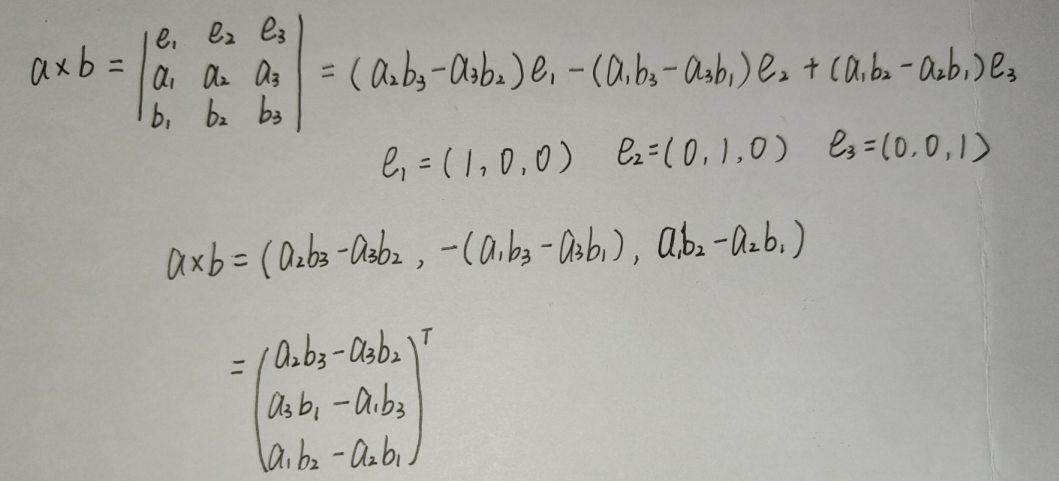 a×b = |e₁ e₂ e₃| = (a₂b₃-a₃b₂)e₁ - (a₁b₃-a₃b₁)e₂ + (a₁b₂-a₂b₁)e₃
|a₁ a₂ a₃|
|b₁ b₂ b₃|
e₁=(1,0,0) e₂=(0,1,0) e₃=(0,0,1)
a×b = (a₂b₃-a₃b₂, -(a₁b₃-a₃b₁), a₁b₂-a₂b₁)
= (a₂b₃-a₃b₂
a₃b₁-a₁b₃
a₁b₂-a₂b₁)ᵀ